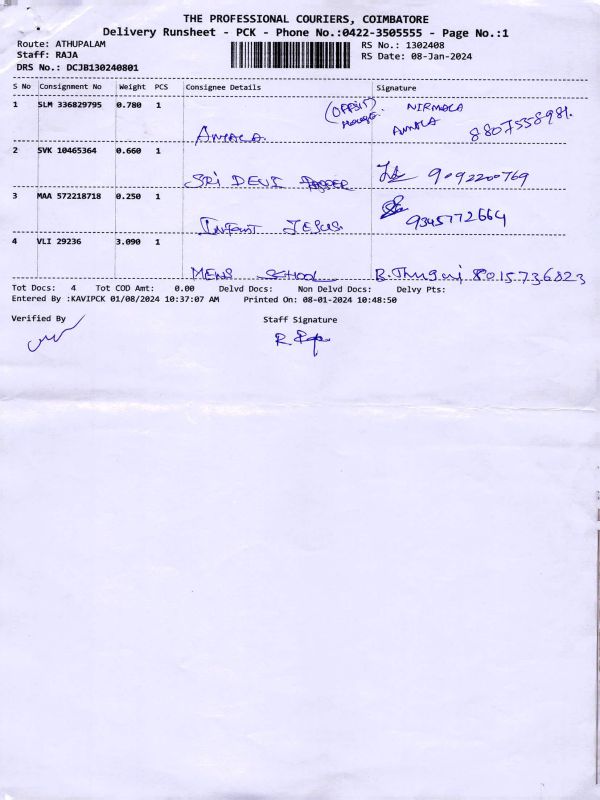 THE PROFESSIONAL COURIERS, COIMBATORE
Delivery Runsheet - PCK - Phone No.:0422-3505555 - Page No.:1
Route: ATHUPALAM RS No.: 1302408
Staff: RAJA RS Date: 08-Jan-2024
DRS No.: DCJB130240801
S No Consignment No Weight PCS Consignee Details Signature
1 SLM 336829795 0.780 1 NIRMALA
AMALA AMALA 8807558981.
2 SVK 10465364 0.660 1
SRI DEVI 9092200769
3 MAA 572218718 0.250 1
INFANT JESUS 9345772664
4 VLI 29236 3.090 1
MENS SCHOOL 8015736823
Tot Docs: 4 Tot COD Amt: 0.00 Delvd Docs: Non Delvd Docs: Delvy Pts:
Entered By :KAVIPCK 01/08/2024 10:37:07 AM Printed On: 08-01-2024 10:48:50
Verified By Staff Signature